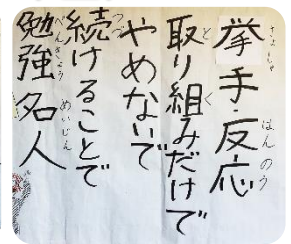 挙手・反応
取り組みだけで
やめないで
続けることで
勉強名人